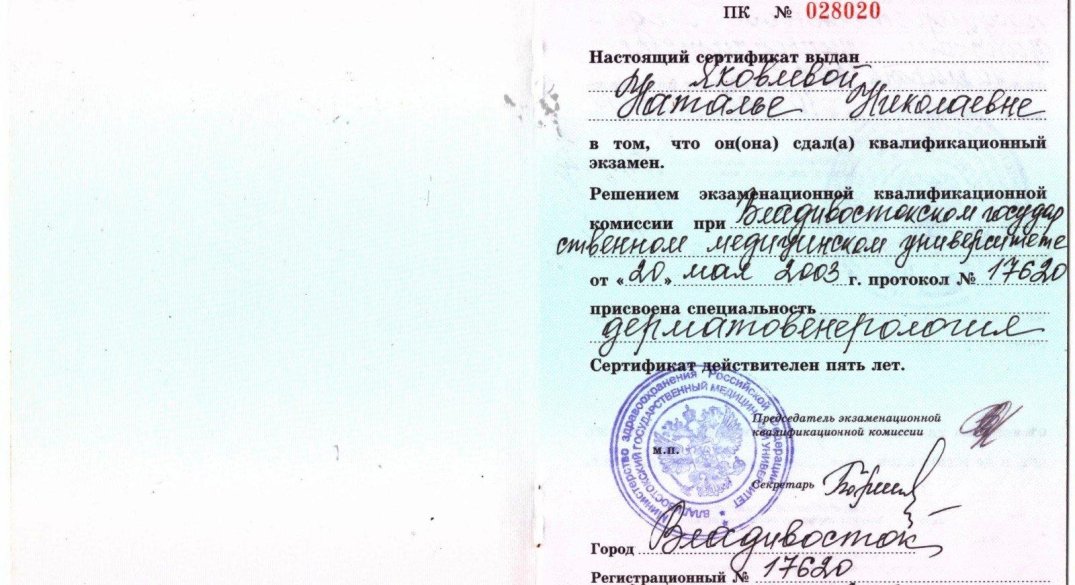 ПК № 028020
Настоящий сертификат выдан
Яковлевой
Наталье Николаевне
в том, что он(она) сдал(а) квалификационный
экзамен.
Решением экзаменационной квалификационной
комиссии при Владивостокском государ
ственном медицинском университете
от «20» мая 2003 г. протокол № 17620
присвоена специальность
дерматовенерология
Сертификат действителен пять лет.
Министерство здравоохранения Российской Федерации
ВЛАДИВОСТОКСКИЙ ГОСУДАРСТВЕННЫЙ МЕДИЦИНСКИЙ УНИВЕРСИТЕТ
Председатель экзаменационной
квалификационной комиссии
м.п.
Секретарь
Город Владивосток
Регистрационный № 17620